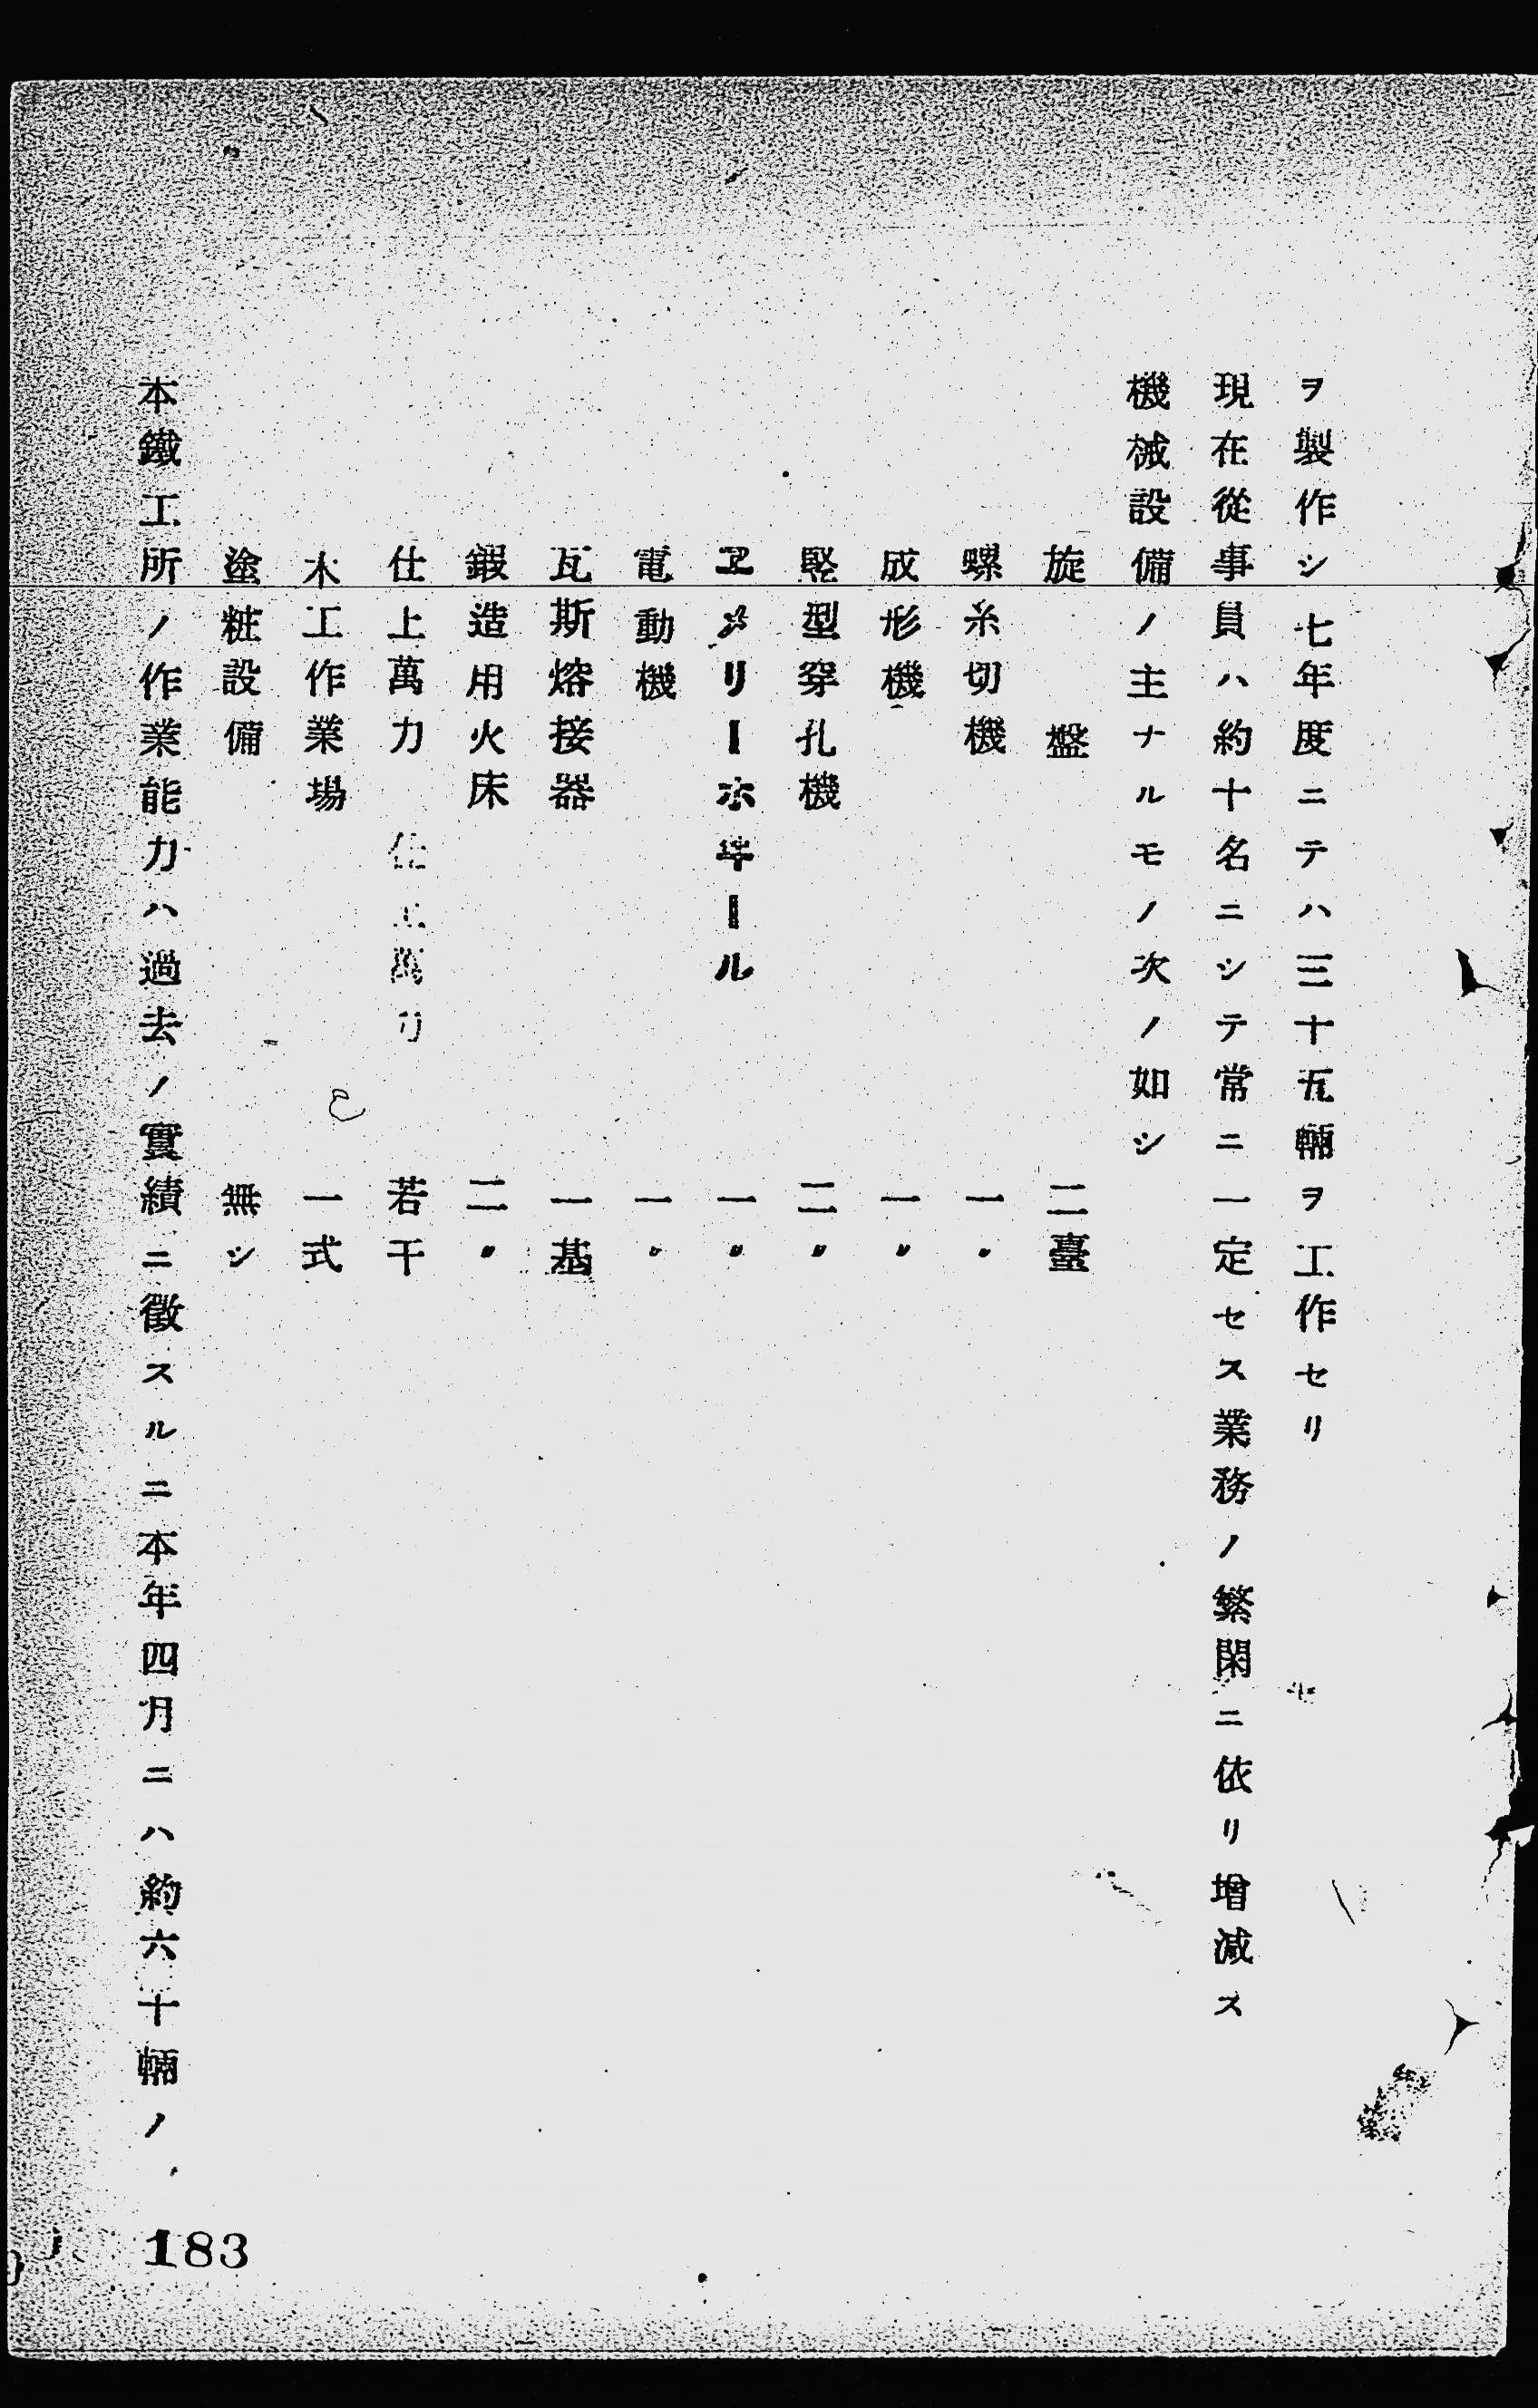 ヲ製作シ七年度ニテハ三十五輛ヲ工作セリ
現在從事員ハ約十名ニシテ常ニ一定セス業務ノ繁閑ニ依リ增減ス
機械設備ノ主ナルモノ次ノ如シ
旋盤 二臺
螺糸切機 一〃
成形機 一〃
竪型穿孔機 二〃
ヱメリーホヰール 一〃
電動機 一〃
瓦斯熔接器 一基
鍛造用火床 二〃
仕上萬力 若干
木工作業場 一式
塗粧設備 無シ
本鐵工所ノ作業能力ハ過去ノ實績ニ徵スルニ本年四月ニハ約六十輛ノ
183